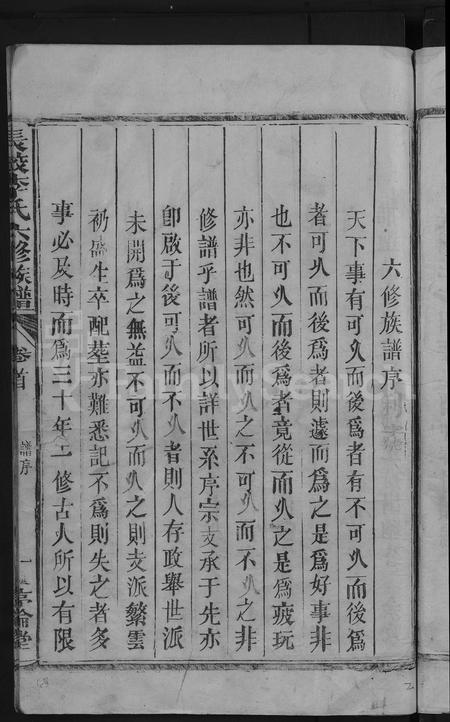 六修族譜序
天下事有可久而後爲者有不可久而後爲
者可久而後爲者則遽而爲之是爲好事非
也不可久而後爲者竟從而久之是爲疲玩
亦非也然可久而久之不可久而不久之非
修譜乎譜者所以詳世系序宗支承于先亦
卽啟于後可久而不久者則人存政舉世派
未開爲之無益不可久而久之則支派繁雲
礽盛生卒配塟亦難悉記不爲則失之者多
事必及時而爲三十年一修古人所以有限
長 李氏六修族譜 卷首 譜序 一 敦倫堂